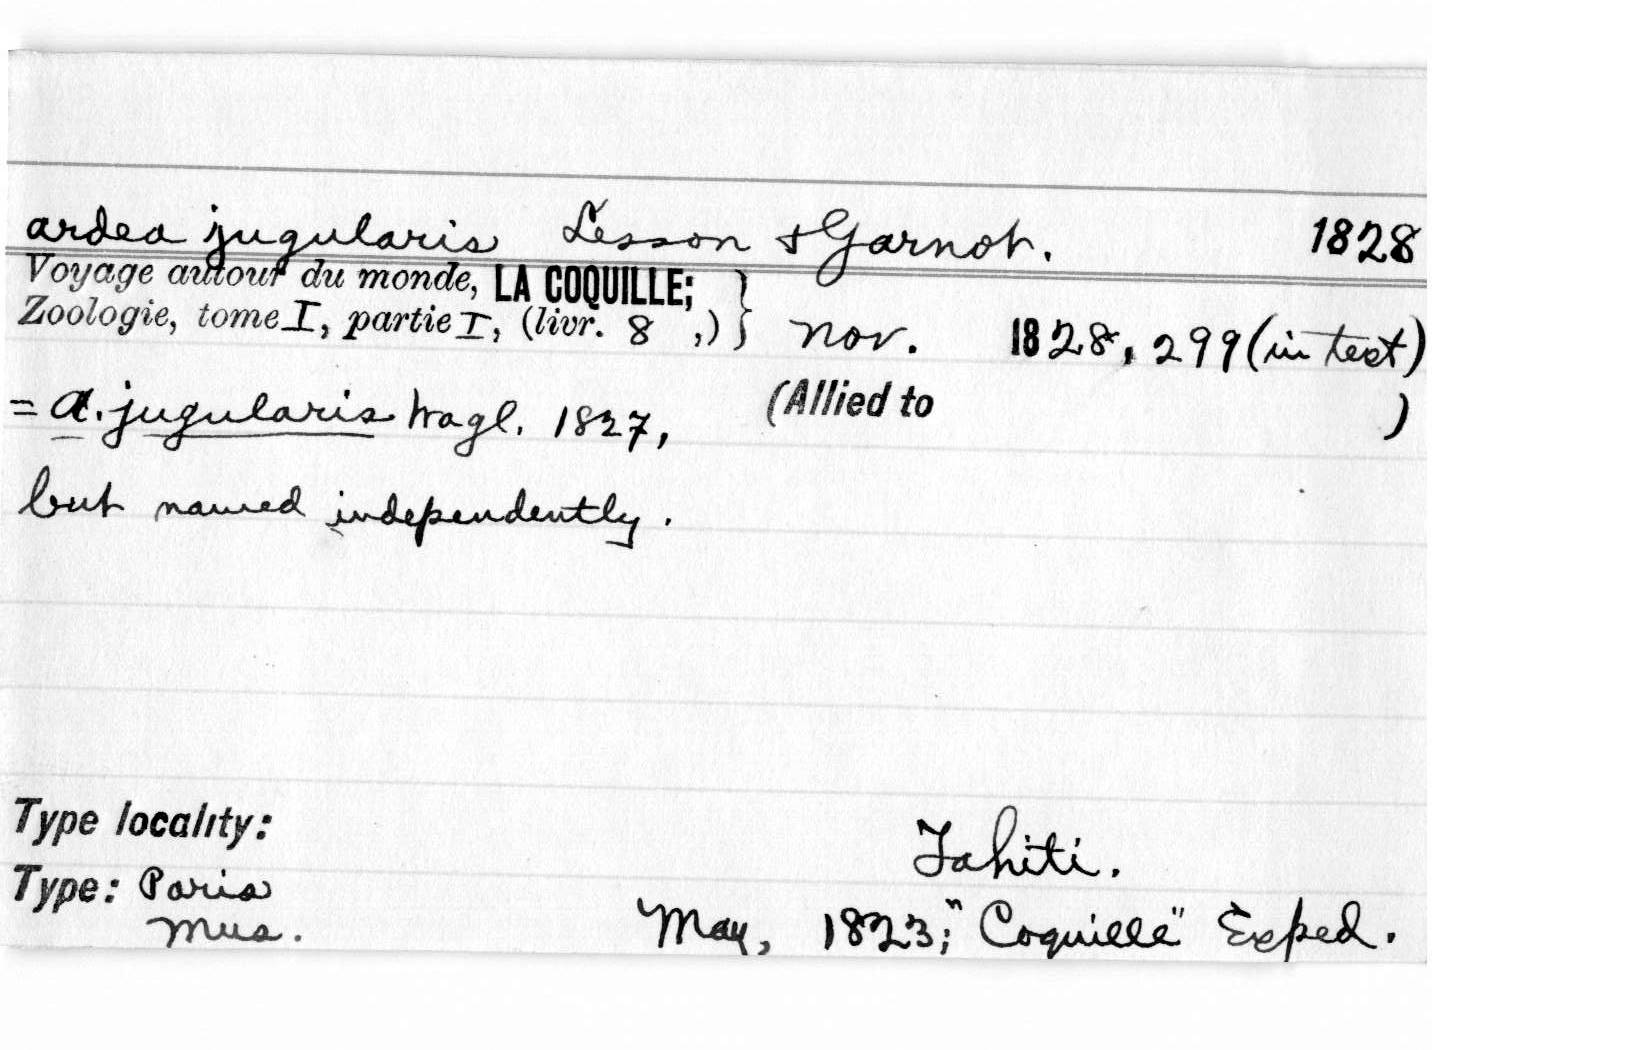 ardea jugularis Lesson & Garnot. 1828
Voyage autour du monde, LA COQUILLE; }
Zoologie, tome I, partie I, (livr. 8 ,) } nov. 1828, 299 (in text)
= A. jugularis Wagl. 1827, (Allied to )
but named independently.
Type locality: Tahiti.
Type: Paris
Mus. May, 1823; "Coquille" Exped.